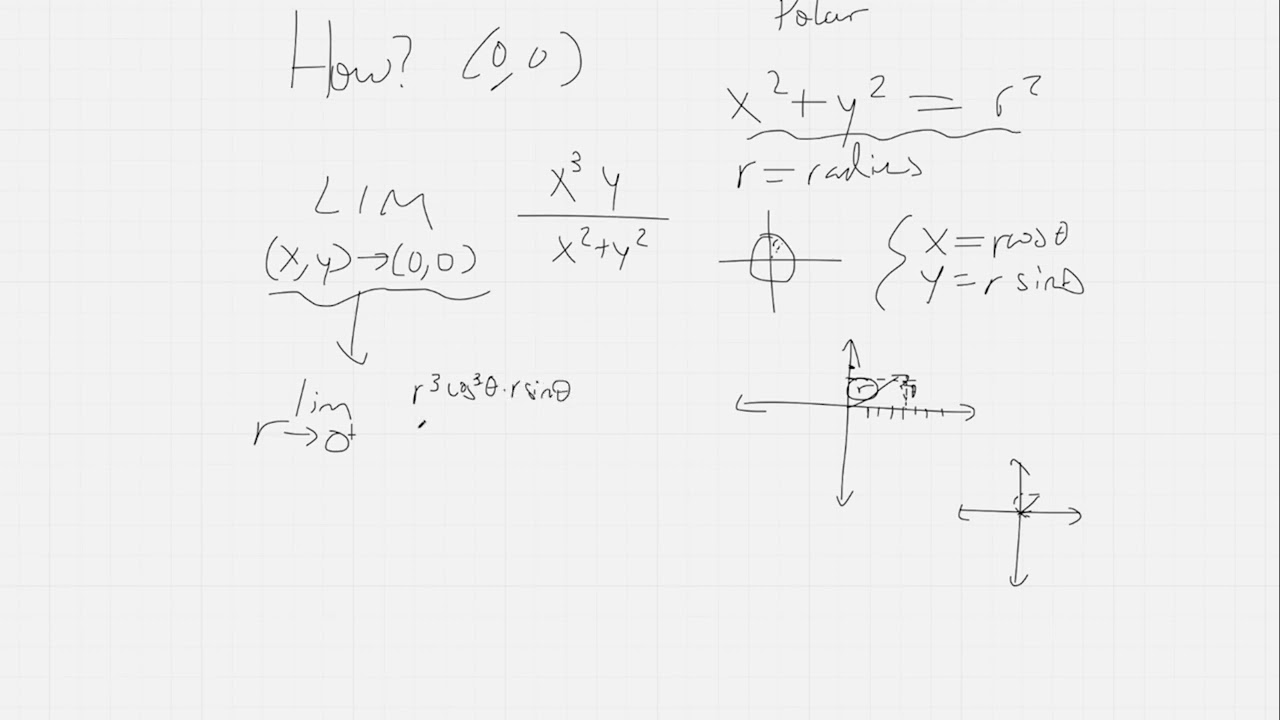 How? (0,0)
Polar
x²+y² = r²
r = radius
LIM
(x,y)→(0,0)
x³ y
x²+y²
x = rcosθ
y = r sinθ
lim
r→0⁺
r³cos³θ·rsinθ
r